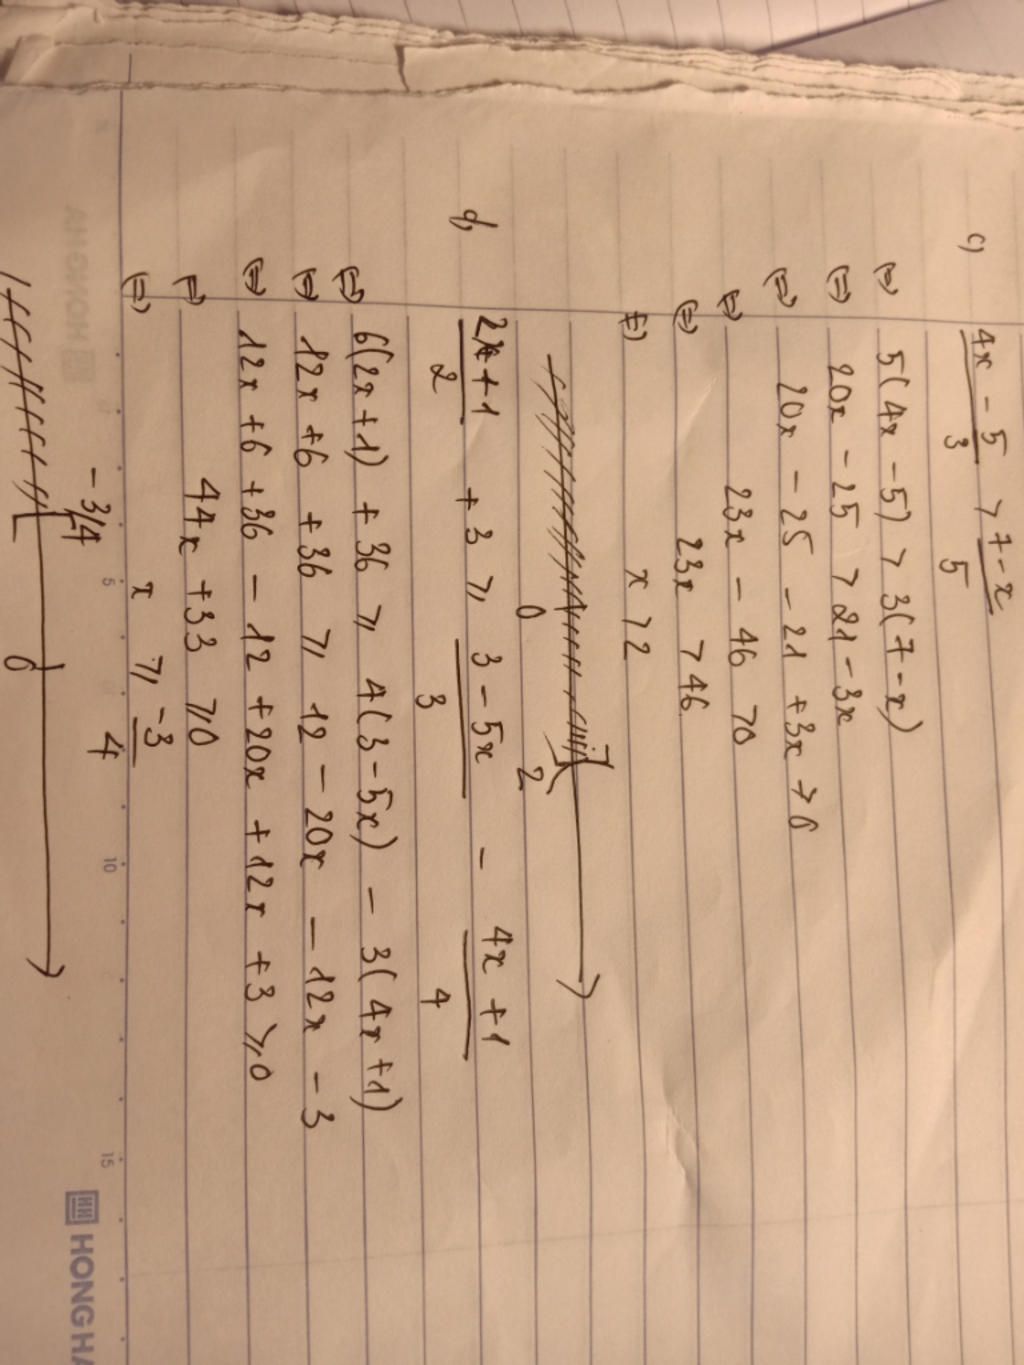 c) (4x - 5)/3 > (7 - x)/5
(=) 5(4x - 5) > 3(7 - x)
(=) 20x - 25 > 21 - 3x
(=) 20x - 25 - 21 + 3x > 0
(=) 23x - 46 > 0
(=) 23x > 46
(=) x > 2
0 2
d, (2x + 1)/2 + 3 ⩾ (3 - 5x)/3 - (4x + 1)/4
(=) 6(2x + 1) + 36 ⩾ 4(3 - 5x) - 3(4x + 1)
(=) 12x + 6 + 36 ⩾ 12 - 20x - 12x - 3
(=) 12x + 6 + 36 - 12 + 20x + 12x + 3 ⩾ 0
(=) 44x + 33 ⩾ 0
(=) x ⩾ -3/4
5 10 15
-3/4 0
HONG HA